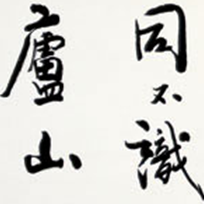 同不識
廬山